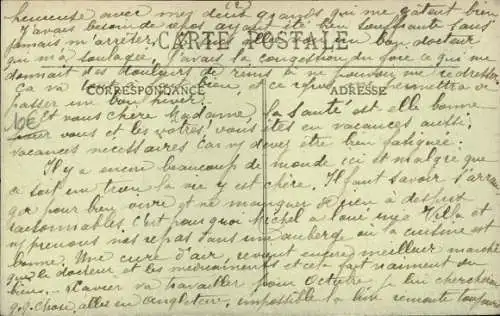 heureuse avec mes deux grands qui me gâtent bien
J'avais besoin de repos ayant été bien souffrante sans
jamais m'arrêter. un bon docteur
CARTE POSTALE
qui m'a soulagée. J'avais la congestion du foie ce qui me
donnait des douleurs de reins à ne pouvoir me redresser
Ça va bien et ce repos permettra de
CORRESPONDANCE
ADRESSE
passer un bon hiver.
Et vous chère Madame, la santé est elle bonne
pour vous et les vôtres, vous êtes en vacances aussi,
vacances nécessaires car vous devez être bien fatiguée.
Il y a encore beaucoup de monde ici et malgré que
ce soit un trou la vie y est chère. Il faut savoir s'arran
ger pour bien vivre et ne manquer de rien à des prix
raisonnables. C'est pourquoi Michel a loué une Villa et
y prenons nos repas dans une auberge où la cuisine est
bonne. Une cure d'air, revient encore meilleur marché
que le docteur et les médicaments et cela fait vraiment du
bien. Xavier va travailler pour Octobre, je lui chercherai
q.q. chose, aller en Angleterre, impossible la livre remonte toujours